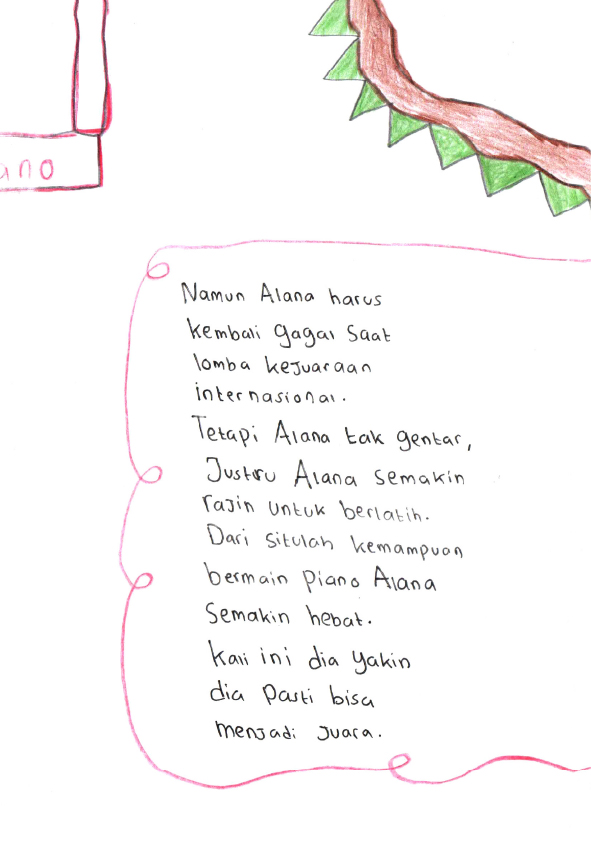 ano
Namun Alana harus
kembali gagal saat
lomba kejuaraan
internasional.
Tetapi Alana tak gentar,
Justru Alana semakin
rajin untuk berlatih.
Dari situlah kemampuan
bermain piano Alana
Semakin hebat.
Kali ini dia yakin
dia pasti bisa
menjadi juara.